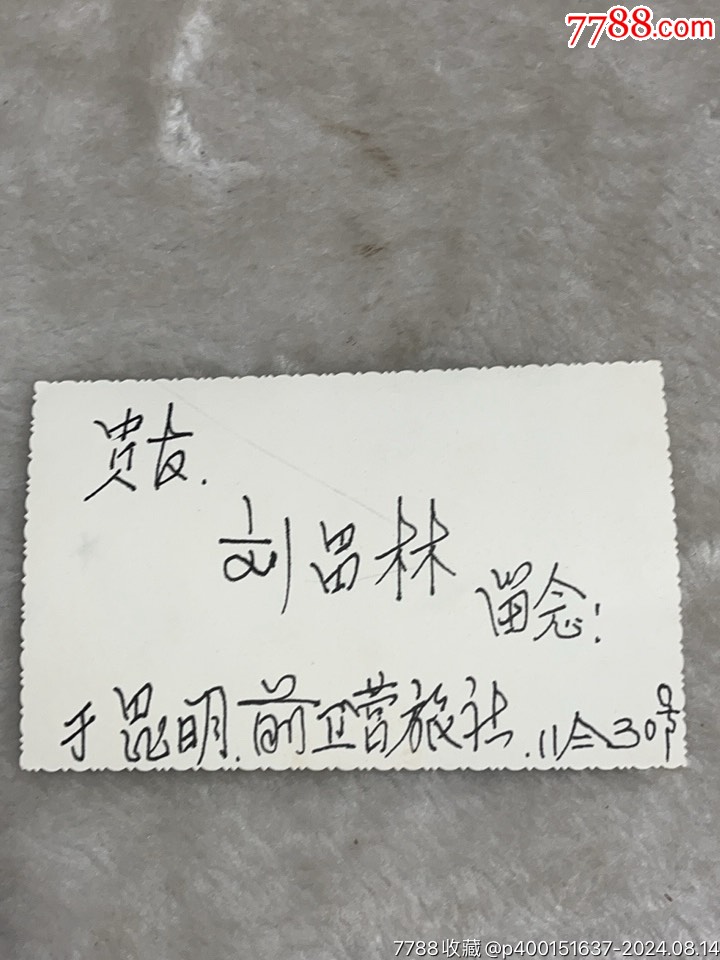 7788.com
贵友.
刘昌林
留念!
于昆明.前卫营旅社.11会30号
7788收藏@p400151637-2024.08.14